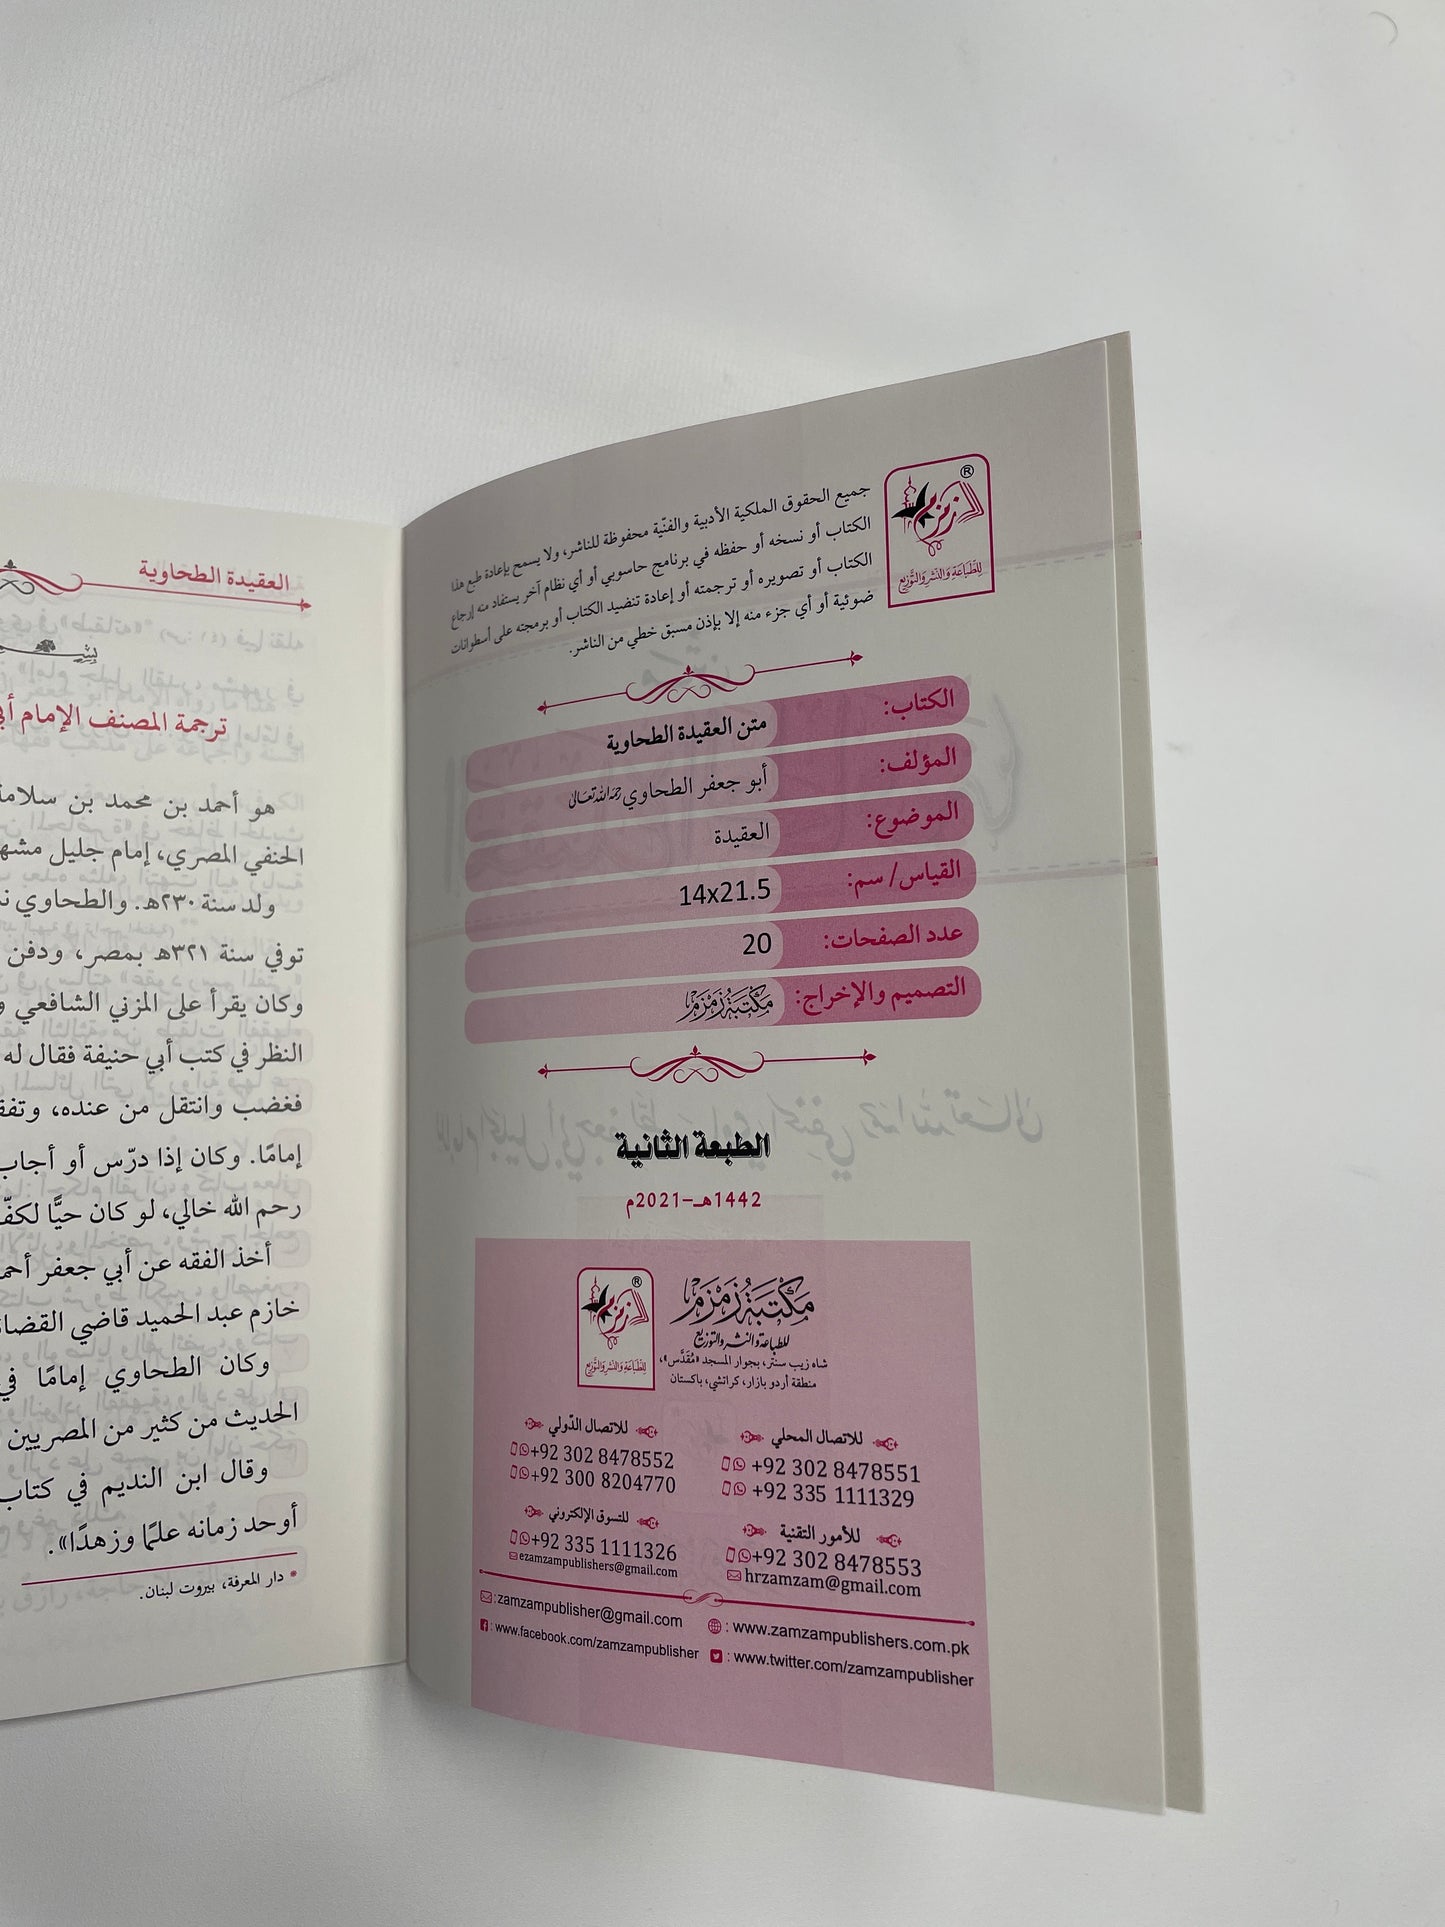 زمزم
®
للطباعة والنشر والتوزيع
جميع الحقوق الملكية الأدبية والفنّية محفوظة للناشر، ولا يسمح بإعادة طبع هذا
الكتاب أو نسخه أو حفظه في برنامج حاسوبي أو أي نظام آخر يستفاد منه إرجاع
الكتاب أو تصويره أو ترجمته أو إعادة تنضيد الكتاب أو برمجته على أسطوانات
ضوئية أو أي جزء منه إلا بإذن مسبق خطي من الناشر.
الكتاب: متن العقيدة الطحاوية
المؤلف: أبو جعفر الطحاوي رحمه الله تعالى
الموضوع: العقيدة
القياس/ سم: 14x21.5
عدد الصفحات: 20
التصميم والإخراج: مكتبة زمزم
الطبعة الثانية
1442هـ-2021م
مكتبة زمزم
للطباعة والنشر والتوزيع
شاه زيب سنتر، بجوار المسجد «مُقَدَّس»،
منطقة أردو بازار، كراتشي، باكستان
زمزم
®
للطباعة والنشر والتوزيع
للاتصال المحلي
+92 302 8478551
+92 335 1111329
للاتصال الدّولي
+92 302 8478552
+92 300 8204770
للأمور التقنية
+92 302 8478553
hrzamzam@gmail.com
للتسوق الإلكتروني
+92 335 1111326
ezamzampublishers@gmail.com
:zamzampublisher@gmail.com
: www.zamzampublishers.com.pk
: www.facebook.com/zamzampublisher
: www.twitter.com/zamzampublisher
العقيدة الطحاوية
ترجمة المصنف الإمام
هو أحمد بن محمد بن سلامة
الحنفي المصري، إمام جليل
ولد سنة ٢٣٠هـ. والطحاوي
توفي سنة ٣٢١هـ بمصر، ودفن
وكان يقرأ على المزني الشافعي
النظر في كتب أبي حنيفة فقال له
فغضب وانتقل من عنده،
إمامًا. وكان إذا درّس أو أجاب
رحم الله خالي، لو كان حيًّا
أخذ الفقه عن أبي جعفر
خازم عبد الحميد قاضي
وكان الطحاوي إمامًا في
الحديث من كثير من المصريين
وقال ابن النديم في كتاب
أوحد زمانه علمًا وزهدًا».
* دار المعرفة، بيروت لبنان.